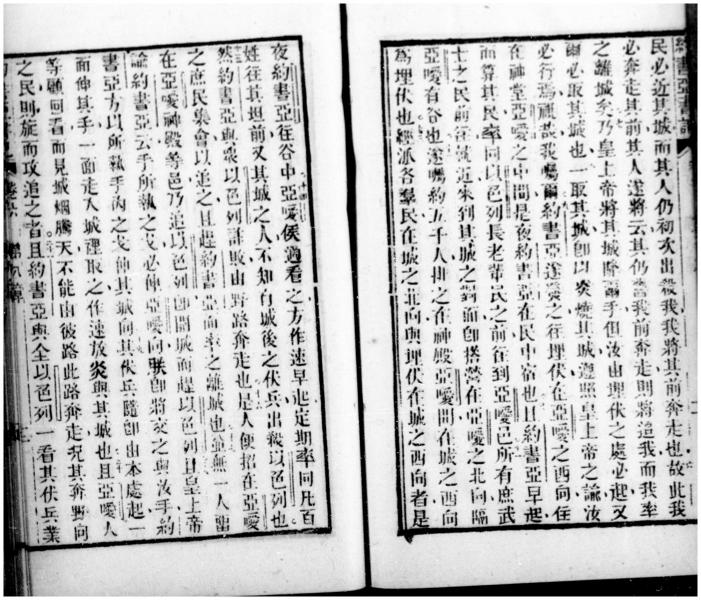 約書亞書
民必近其城而其人仍初次出殺我我將其前奔走也故此我
必奔走其前其人遂將云其仍當我前奔走則將追我而我率
之離城矣乃皇上帝將其城降爾手但汝由埋伏之處必起又
爾必取其城也一取其城卽以炎燒其城遵照皇上帝之諭汝
必行焉顧哉我囑爾約書亞遂發之往埋伏在亞噯之西向住
在神堂亞噯之中間是夜約書亞在民中宿也且約書亞早起
而算其民率同以色列長老輩民之前往到亞噯邑所有庶武
士之民前往就近來到其城之對面卽搭營在亞噯之北向隔
亞噯有谷也遂囑約五千人排之在神殿亞噯間在城之西向
為埋伏也經派各羣民在城之北向與埋伏在城之西向者是
夜約書亞往谷中亞噯侯遇看之方作速早起定期率同凡百
姓往其坦前又其城之人不知有城後之伏兵出殺以色列也
然約書亞與眾以色列詐敗由野路奔走也是人便招在亞噯
之庶民集會以追之且趕約書亞而率之離城也並無一人留
在亞噯神殿等邑乃追以色列卽開城而趕以色列且皇上帝
諭約書亞云手所執之戈必伸亞噯向朕卽將交之與汝手約
書亞方以所執手內之戈伸其城向其伏兵隨卽由本處起一
而伸其手一面走入城裡取之作速放炎與其城也且亞噯人
等顧回看而見城烟騰天不能由彼路此路奔走况其奔野向
之民則旋而攻追之者且約書亞與全以色列一看其伏兵業